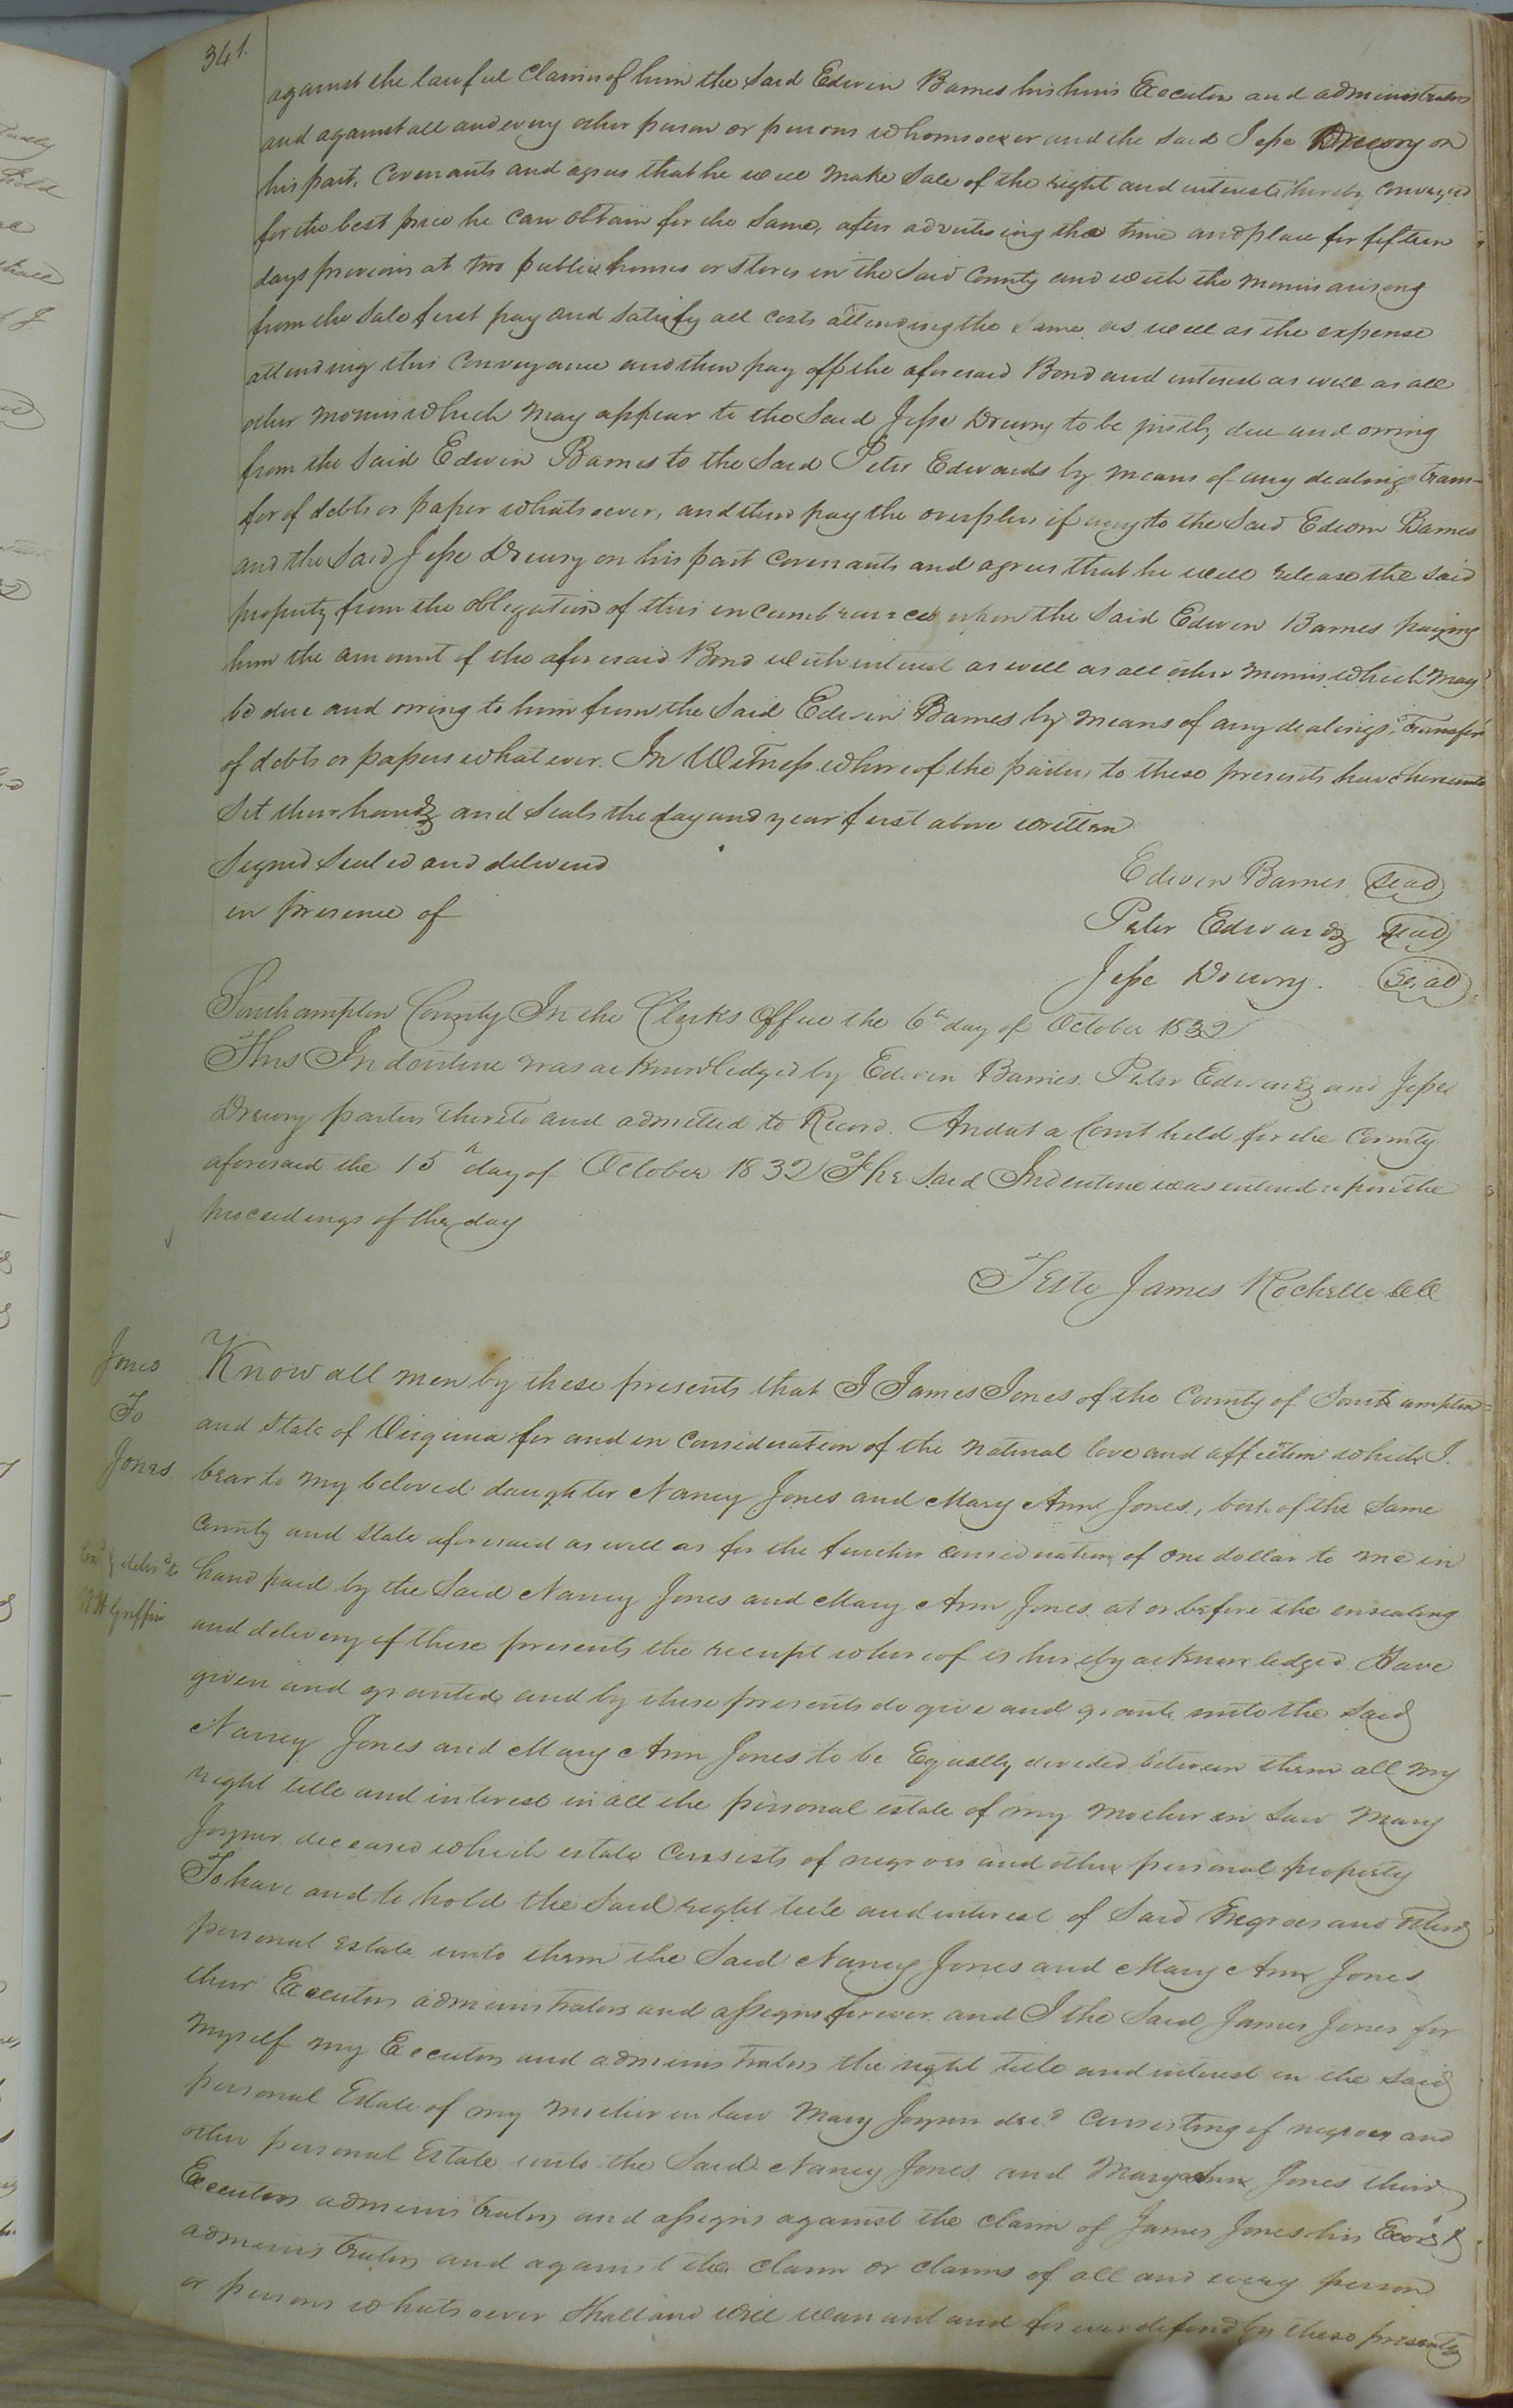 341.
against the lawful claims of him the said Edwin Barnes his heirs Executors and administrators
and against all and every other person or persons whomsoever and the said Jesse Drewry on
his part, Covenants and agrees that he will make sale of the right and interest hereby conveyed
for the best price he can obtain for the same, after advertising the time and place for fifteen
days previous at two public houses or stores in the said County and with the monies arising
from the sale first pay and satisfy all costs attending the same as well as the expense
attending this conveyance and then pay off the aforesaid Bond and interest as well as all
other monies which may appear to the said Jesse Drewry to be justly due and owing
from the said Edwin Barnes to the said Peter Edwards by means of any dealings trans-
fer of debts or paper whatsoever, and then pay the overplus if any to the said Edwin Barnes
and the said Jesse Drewry on his part covenants and agrees that he will release the said
property from the obligation of this incumbrance when the said Edwin Barnes paying
him the amount of the aforesaid Bond with interest as well as all other monies which may
be due and owing to him from the said Edwin Barnes by means of any dealings, transfer
of debts or papers whatever. In Witness whereof the parties to these presents have hereunto
set their hands and seals the day and year first above written
Signed Sealed and delivered
in presence of
Edwin Barnes seal
Peter Edwards seal
Jesse Drewry. Seal
Southampton County In the Clerks Office the 6th day of October 1832
This Indenture was acknowledged by Edwin Barnes, Peter Edwards and Jesse
Drewry parties thereto and admitted to Record. And at a Court held for the County
aforesaid the 15th day of October 1832 The said Indenture was entered upon the
proceedings of the day
Teste James Rochelle
Jones
To
Jones.
& deliv'd to
Griffin
Know all men by these presents that I James Jones of the County of Southampton
and State of Virginia for and in consideration of the natural love and affection which I
bear to my beloved daughter Nancy Jones and Mary Ann Jones, both of the same
County and State aforesaid as well as for the further consideration of one dollar to me in
hand paid by the said Nancy Jones and Mary Ann Jones at or before the ensealing
and delivery of these presents the receipt whereof is hereby acknowledged Have
given and granted and by these presents do give and grant unto the said
Nancy Jones and Mary Ann Jones to be Equally divided between them all my
right title and interest in all the personal estate of my mother in law Mary
Joyner deceased which estate consists of negroes and other personal property
To have and to hold the said right title and interest of said Negroes and other
personal estate unto them the said Nancy Jones and Mary Ann Jones
their Executors administrators and assigns forever and I the said James Jones for
myself my Executors and administrators the right title and interest in the said
personal Estate of my mother in law Mary Joyner dec'd consisting of negroes and
other personal Estate unto the said Nancy Jones and Mary Ann Jones their
Executors administrators and assigns against the claim of James Jones his Exors &
administrators and against the claim or claims of all and every person
or persons whatsoever shall and will warrant and forever defend by these presents